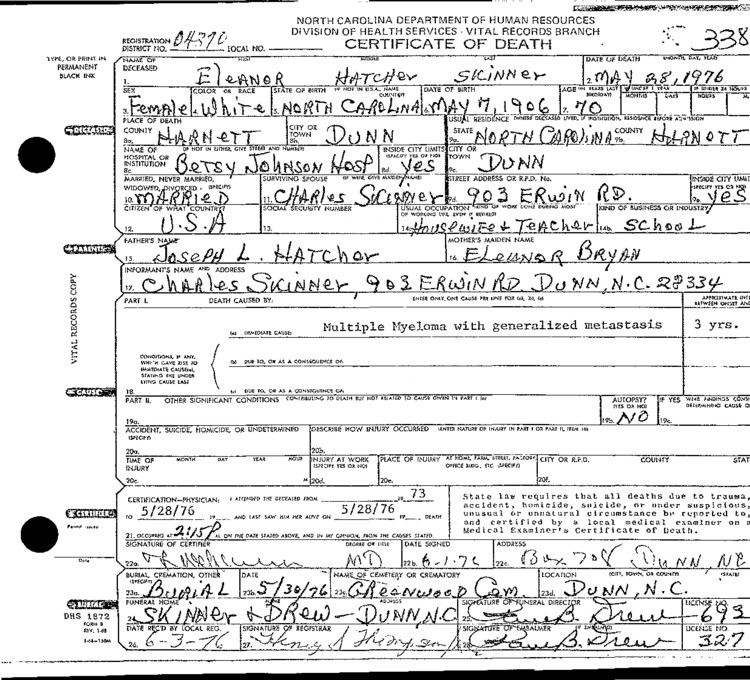 NORTH CAROLINA DEPARTMENT OF HUMAN RESOURCES
DIVISION OF HEALTH SERVICES - VITAL RECORDS BRANCH
CERTIFICATE OF DEATH
338
REGISTRATION DISTRICT NO. 04390 LOCAL NO.
TYPE, OR PRINT IN PERMANENT BLACK INK
NAME OF DECEASED FIRST MIDDLE LAST DATE OF DEATH (MONTH, DAY, YEAR)
1. Eleanor Hatcher Skinner 2. May 28, 1976
SEX COLOR OR RACE STATE OF BIRTH (IF NOT IN U.S.A., NAME COUNTRY) DATE OF BIRTH AGE (IN YEARS LAST BIRTHDAY) MONTHS DAYS HOURS
Female White 5. North Carolina 6. May 17, 1906 7. 70
PLACE OF DEATH USUAL RESIDENCE
COUNTY CITY OR TOWN STATE COUNTY
8a. Harnett 8b. Dunn 9a. North Carolina 9b. Harnett
NAME OF HOSPITAL OR INSTITUTION (IF NOT IN EITHER, GIVE STREET AND NUMBER) INSIDE CITY LIMITS (SPECIFY YES OR NO) CITY OR TOWN
8c. Betsy Johnson Hosp 8d. Yes 9c. Dunn
MARRIED, NEVER MARRIED, WIDOWED, DIVORCED (SPECIFY) SURVIVING SPOUSE (IF WIFE, GIVE MAIDEN NAME) STREET ADDRESS OR R.F.D. No. INSIDE CITY LIMITS (SPECIFY YES OR NO)
10. Married 11. Charles Skinner 9d. 903 Erwin RD. 9e. Yes
CITIZEN OF WHAT COUNTRY? SOCIAL SECURITY NUMBER USUAL OCCUPATION (KIND OF WORK DONE DURING MOST OF WORKING LIFE, EVEN IF RETIRED) KIND OF BUSINESS OR INDUSTRY
12. U.S.A 13. 14a. Housewife & Teacher 14b. School
FATHER'S NAME MOTHER'S MAIDEN NAME
15. Joseph L. Hatcher 16. Eleanor Bryan
INFORMANT'S NAME AND ADDRESS
17. Charles Skinner, 903 Erwin RD. Dunn, N.C. 28334
PART I. DEATH CAUSED BY: ENTER ONLY ONE CAUSE PER LINE FOR (a), (b), (c)
(a) IMMEDIATE CAUSE: Multiple Myeloma with generalized metastasis 3 yrs.
CONDITIONS, IF ANY, WHICH GAVE RISE TO IMMEDIATE CAUSE(a), STATING THE UNDERLYING CAUSE LAST
(b) DUE TO, OR AS A CONSEQUENCE OF:
18. (c) DUE TO, OR AS A CONSEQUENCE OF:
PART II. OTHER SIGNIFICANT CONDITIONS CONTRIBUTING TO DEATH BUT NOT RELATED TO CAUSE GIVEN IN PART I (a) AUTOPSY? (YES OR NO)
19a. 19b. NO 19c.
ACCIDENT, SUICIDE, HOMICIDE, OR UNDETERMINED (SPECIFY) DESCRIBE HOW INJURY OCCURRED (ENTER NATURE OF INJURY IN PART I OR PART II, ITEM 18)
20a. 20b.
TIME OF INJURY MONTH DAY YEAR HOUR INJURY AT WORK (SPECIFY YES OR NO) PLACE OF INJURY AT HOME, FARM, STREET, FACTORY, OFFICE BLDG., ETC. (SPECIFY) CITY OR R.F.D. COUNTY STAT
20c. M 20d. 20e. 20f.
CERTIFICATION-PHYSICIAN: I ATTENDED THE DECEASED FROM 19 73
TO 5/28/76 19 AND LAST SAW HIM HER ALIVE ON 5/28/76 19 DEATH
21. OCCURRED AT 2:15 P M. ON THE DATE STATED ABOVE, AND IN MY OPINION, FROM THE CAUSES STATED.
State law requires that all deaths due to trauma,
accident, homicide, suicide, or under suspicious,
unusual or unnatural circumstance be reported to,
and certified by a local medical examiner on a
Medical Examiner's Certificate of Death.
SIGNATURE OF CERTIFIER DEGREE OR TITLE DATE SIGNED ADDRESS
22a. MD 22b. 6-1-76 22c. Box 708 Dunn, NC
BURIAL, CREMATION, OTHER (SPECIFY) DATE NAME OF CEMETERY OR CREMATORY LOCATION (CITY, TOWN, OR COUNTY) (STATE)
23a. Burial 23b. 5/30/76 23c. Greenwood Cem. 23d. Dunn, N.C.
FUNERAL HOME ADDRESS SIGNATURE OF FUNERAL DIRECTOR LICENSE NO.
24. Skinner & Drew - Dunn, N.C 25. Drew 693
DATE REC'D BY LOCAL REG. SIGNATURE OF REGISTRAR SIGNATURE OF EMBALMER LICENSE NO.
26. 6-3-76 27. 28. Drew 327
VITAL RECORDS COPY
DHS 1872
FORM 8